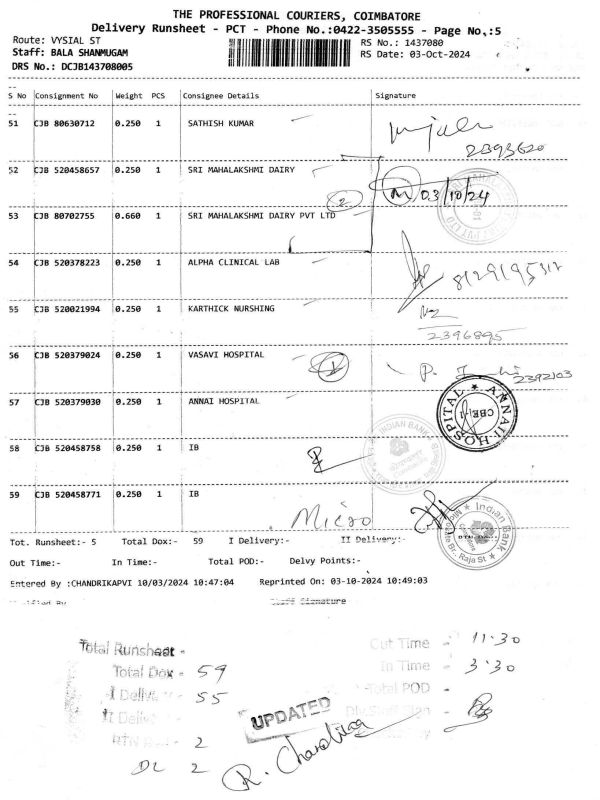 THE PROFESSIONAL COURIERS, COIMBATORE
Delivery Runsheet - PCT - Phone No.:0422-3505555 - Page No,:5
Route: VYSIAL ST RS No.: 1437080
Staff: BALA SHANMUGAM RS Date: 03-Oct-2024
DRS No.: DCJB143708005
S No Consignment No Weight PCS Consignee Details Signature
51 CJB 80630712 0.250 1 SATHISH KUMAR
2393620
52 CJB 520458657 0.250 1 SRI MAHALAKSHMI DAIRY 2 03/10/24
53 CJB 80702755 0.660 1 SRI MAHALAKSHMI DAIRY PVT LTD
54 CJB 520378223 0.250 1 ALPHA CLINICAL LAB
55 CJB 520021994 0.250 1 KARTHICK NURSHING
2396895
56 CJB 520379024 0.250 1 VASAVI HOSPITAL
2392103
57 CJB 520379030 0.250 1 ANNAI HOSPITAL
ANNAII HOSPITAL CBE-1
58 CJB 520458758 0.250 1 IB
INDIAN BANK
59 CJB 520458771 0.250 1 IB
Micro
Indian Bank
Raja St
Tot. Runsheet:- 5 Total Dox:- 59 I Delivery:- II Delivery:-
Out Time:- In Time:- Total POD:- Delvy Points:-
Entered By :CHANDRIKAPVI 10/03/2024 10:47:04 Reprinted On: 03-10-2024 10:49:03
Staff Signature
Total Runsheet - Out Time - 11.30
Total Dox - 59 In Time - 3.30
I Delivery - 55 Total POD -
II Delivery -
UPDATED
2
DL 2
R. Chandrika